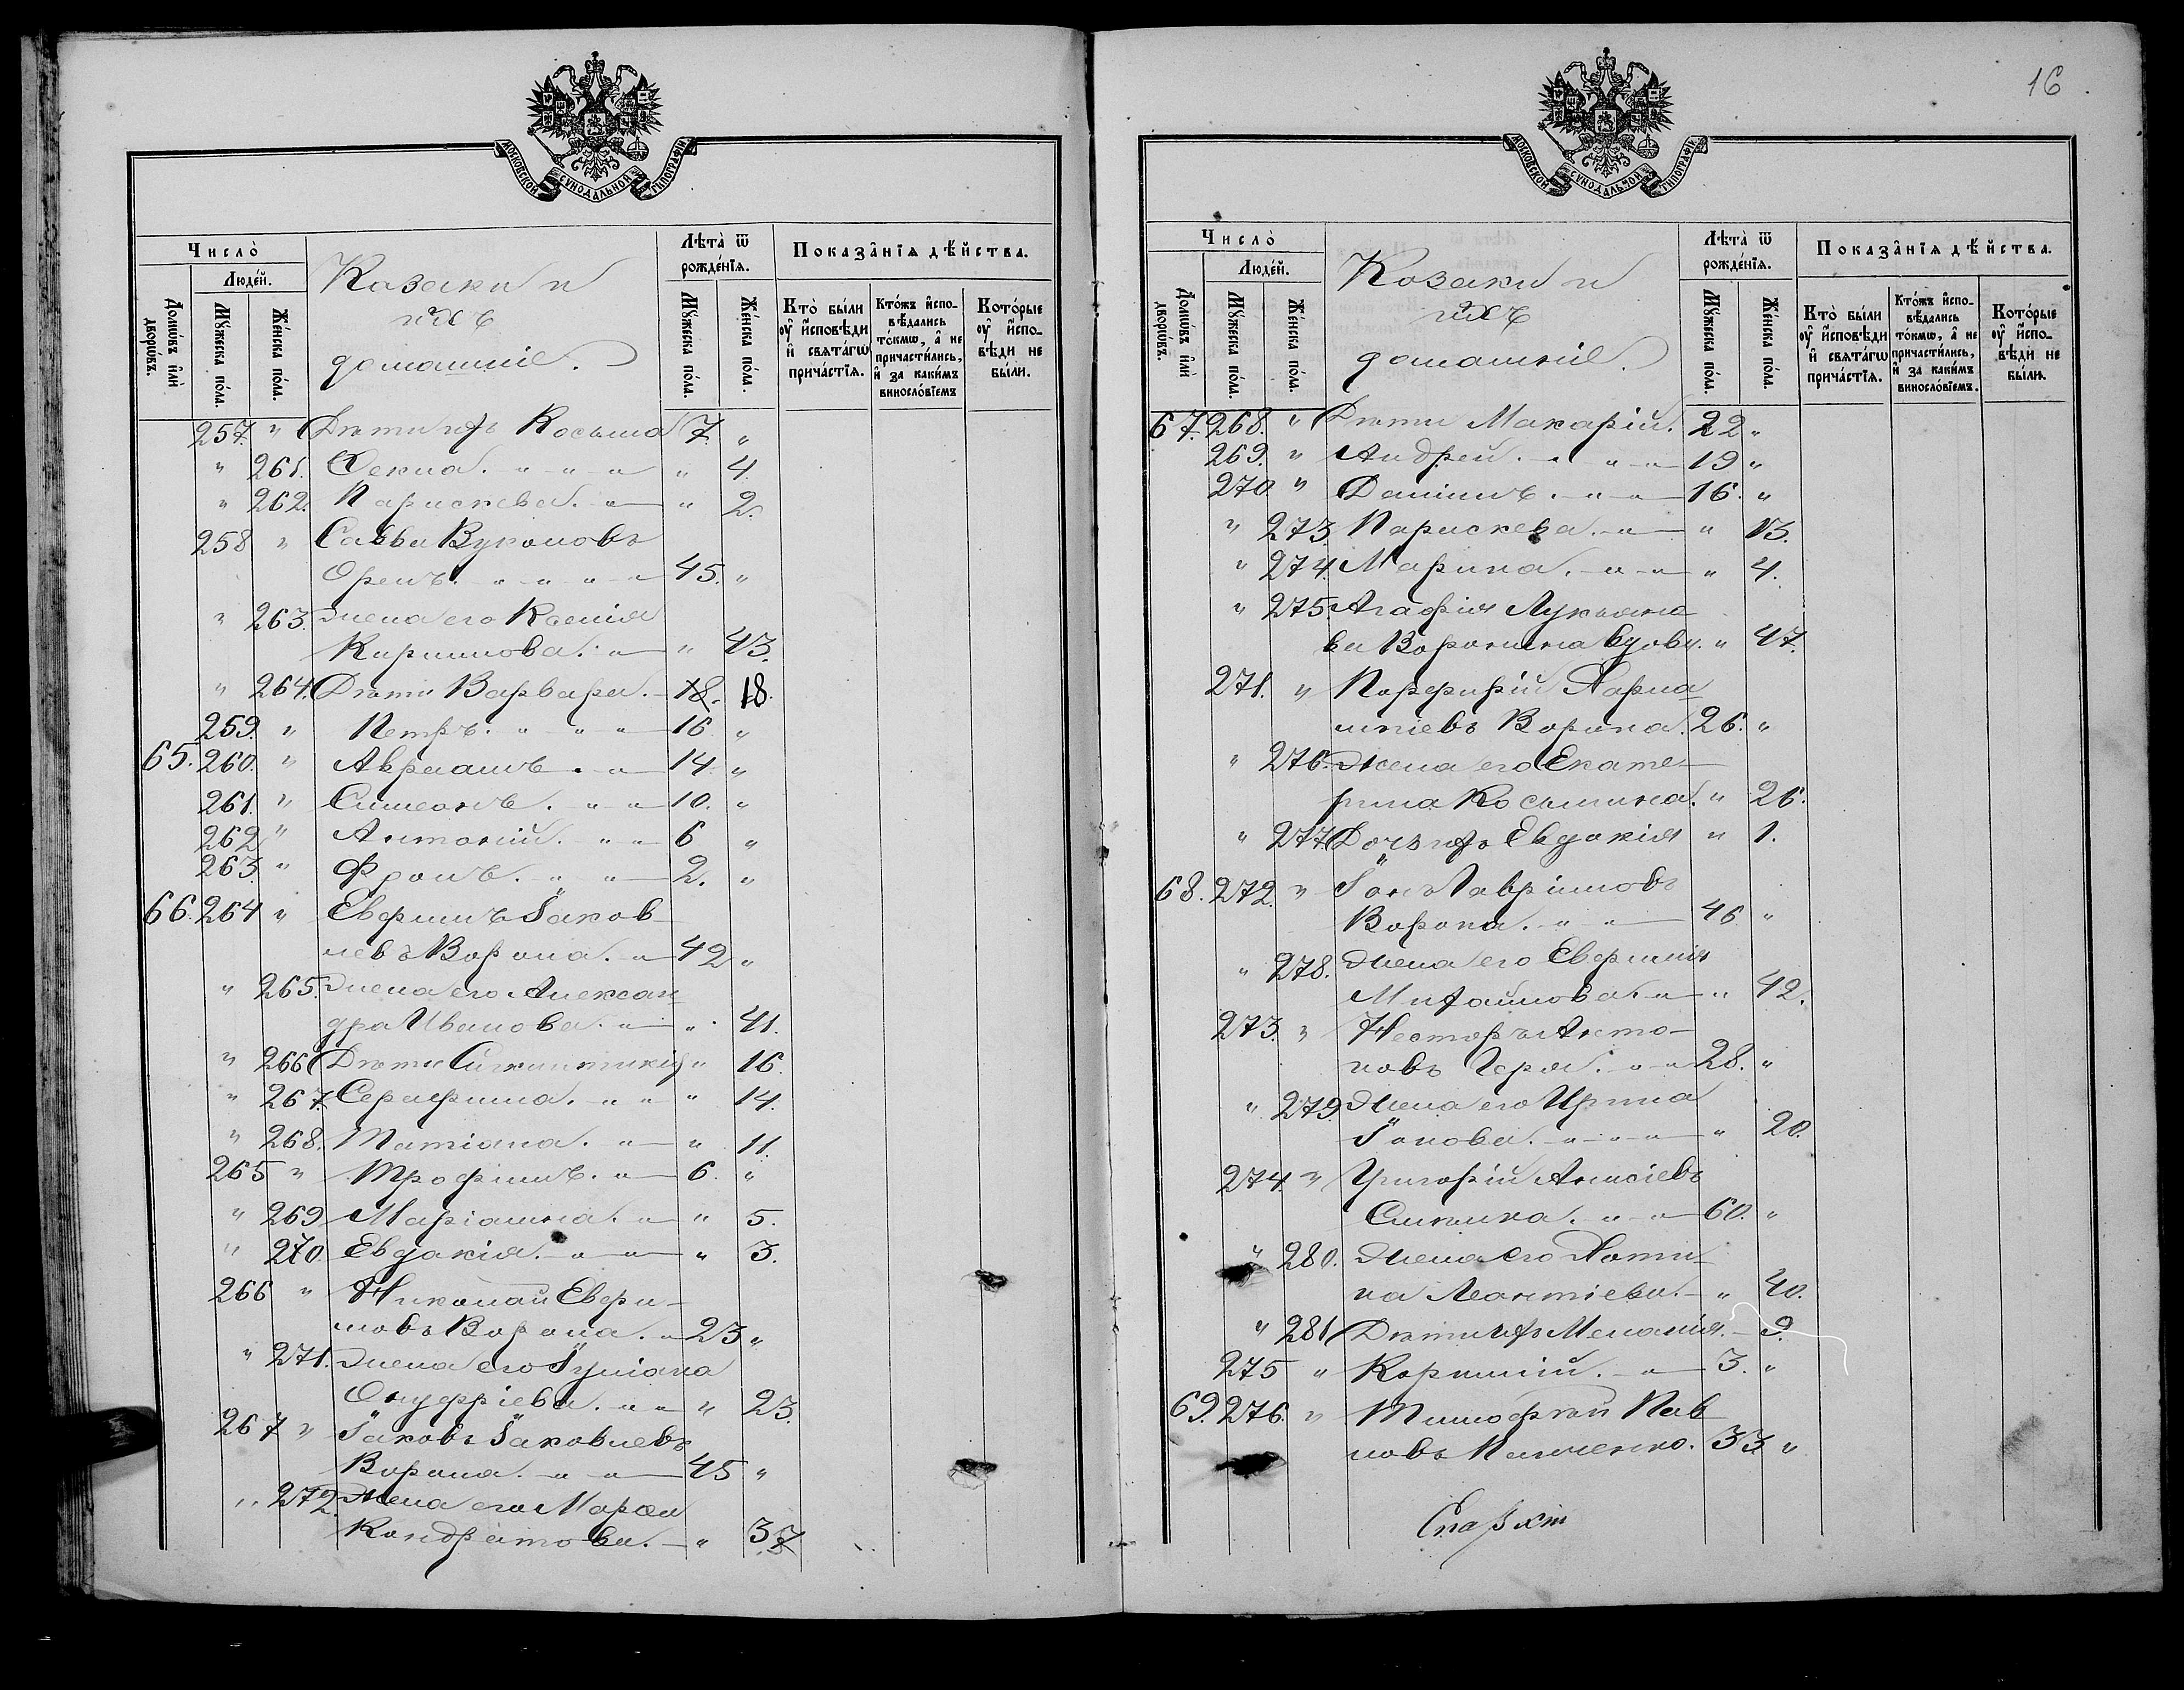 МОСКОВСКОЙ СѴНОДАЛЬНОЙ ТИПОГРАФІИ
Число̀
Людéй.
Домѡ́въ и҆лѝ дворѡ́въ.
Мꙋ́жеска по́ла.
Же́нска по́ла.
Козаки и
ихъ
домашніе.
Лѣта̀ ѿ рожде́нїѧ.
Мꙋ́жеска по́ла.
Же́нска по́ла.
Показа̑нїѧ дѣ́йства.
Кто̀ бы́ли ᲂу҆ и҆сповѣ́ди и҆ свѧта́гѡ прича́стїѧ.
Кто́жъ и҆сповѣ́дались то́кмѡ, а҆ не причасти́лись, и҆ за каки́мъ виносло́вїемъ
Кото́рые ᲂу҆ и҆сповѣ́ди не бы́ли.
257. " Дѣти ихъ Косьма 7. "
" 261. Ѳекла. " " " " 4.
" 262. Параскева. " " 2.
258 " Савва Вуколовъ
45. "
" 263. Жена его Ксенія
Кириллова. " " 43.
" 264. Дѣти Варвара. 18. 18.
259 " Петръ. " " " 16 "
65. 260. " Авраамъ. " 14. "
261. " Симеонъ. " " 10. "
262 " Антоній. " " 6 "
263. " Фролъ. " " 2. "
66. 264 " Евфимъ Іаков-
левъ Ворона. " 42 "
" 265. Жена его Алексан
дра Иванова. " " 41.
" 266 Дѣти Сигклитикія " 16.
" 267. Серафима. " " " 14.
" 268. Татіана. " " 11.
265 " Трофимъ. " 6. "
" 269 Маріамна. " " 5.
" 270 Евдокія. " " " 3.
266 " Николай Евфи-
мовъ Ворона. " 23 "
" 271. Жена его Іуліана
Онуфріева. " " " 23.
267 " Іаковъ Іаковлевъ
Ворона. " " 45 "
" 272. Жена его Марѳа
Кондратова. " 37
16
МОСКОВСКОЙ СѴНОДАЛЬНОЙ ТИПОГРАФІИ
Число̀
Людéй.
Домѡ́въ и҆лѝ дворѡ́въ.
Мꙋ́жеска по́ла.
Же́нска по́ла.
Козаки и
ихъ
домашніе.
Лѣта̀ ѿ рожде́нїѧ.
Мꙋ́жеска по́ла.
Же́нска по́ла.
Показа̑нїѧ дѣ́йства.
Кто̀ бы́ли ᲂу҆ и҆сповѣ́ди и҆ свѧта́гѡ прича́стїѧ.
Кто́жъ и҆сповѣ́дались то́кмѡ, а҆ не причасти́лись, и҆ за каки́мъ виносло́вїемъ.
Кото́рые ᲂу҆ и҆сповѣ́ди не бы́ли.
67. 268. " Дѣти Макарій. 22 "
269. " Андрей. " " " 19 "
270 " Даніилъ. " " 16. "
" 273. Параскева. " " 13.
" 274. Марина. " " " 4.
" 275. Агафія Лукьяно
ва Воронина вдова. " 47.
271. " Порфирій
Ворона. 26. "
" 276. Жена его Екате-
рина Косьмина. " 26.
" 277. Дочь ихъ Евдокія " 1.
68. 272. " Іона Гавріиловъ
Ворона. " " 46 "
" 278. Жена его Евфимія
Михайлова. " " 42.
273. " Несторъ Анто-
новъ Чер " " 28. "
" 279. Жена его Ирина
Іонова. " " " " 20.
274. " Григорій
" " 60. "
" 280. Жена его Фоти-
на Леонтіева. " 40.
" 281 Дѣти ихъ Меланія. 9.
275 " Корнилій. " 3. "
69. 276. " Тимофей Пав
ловъ 33 "